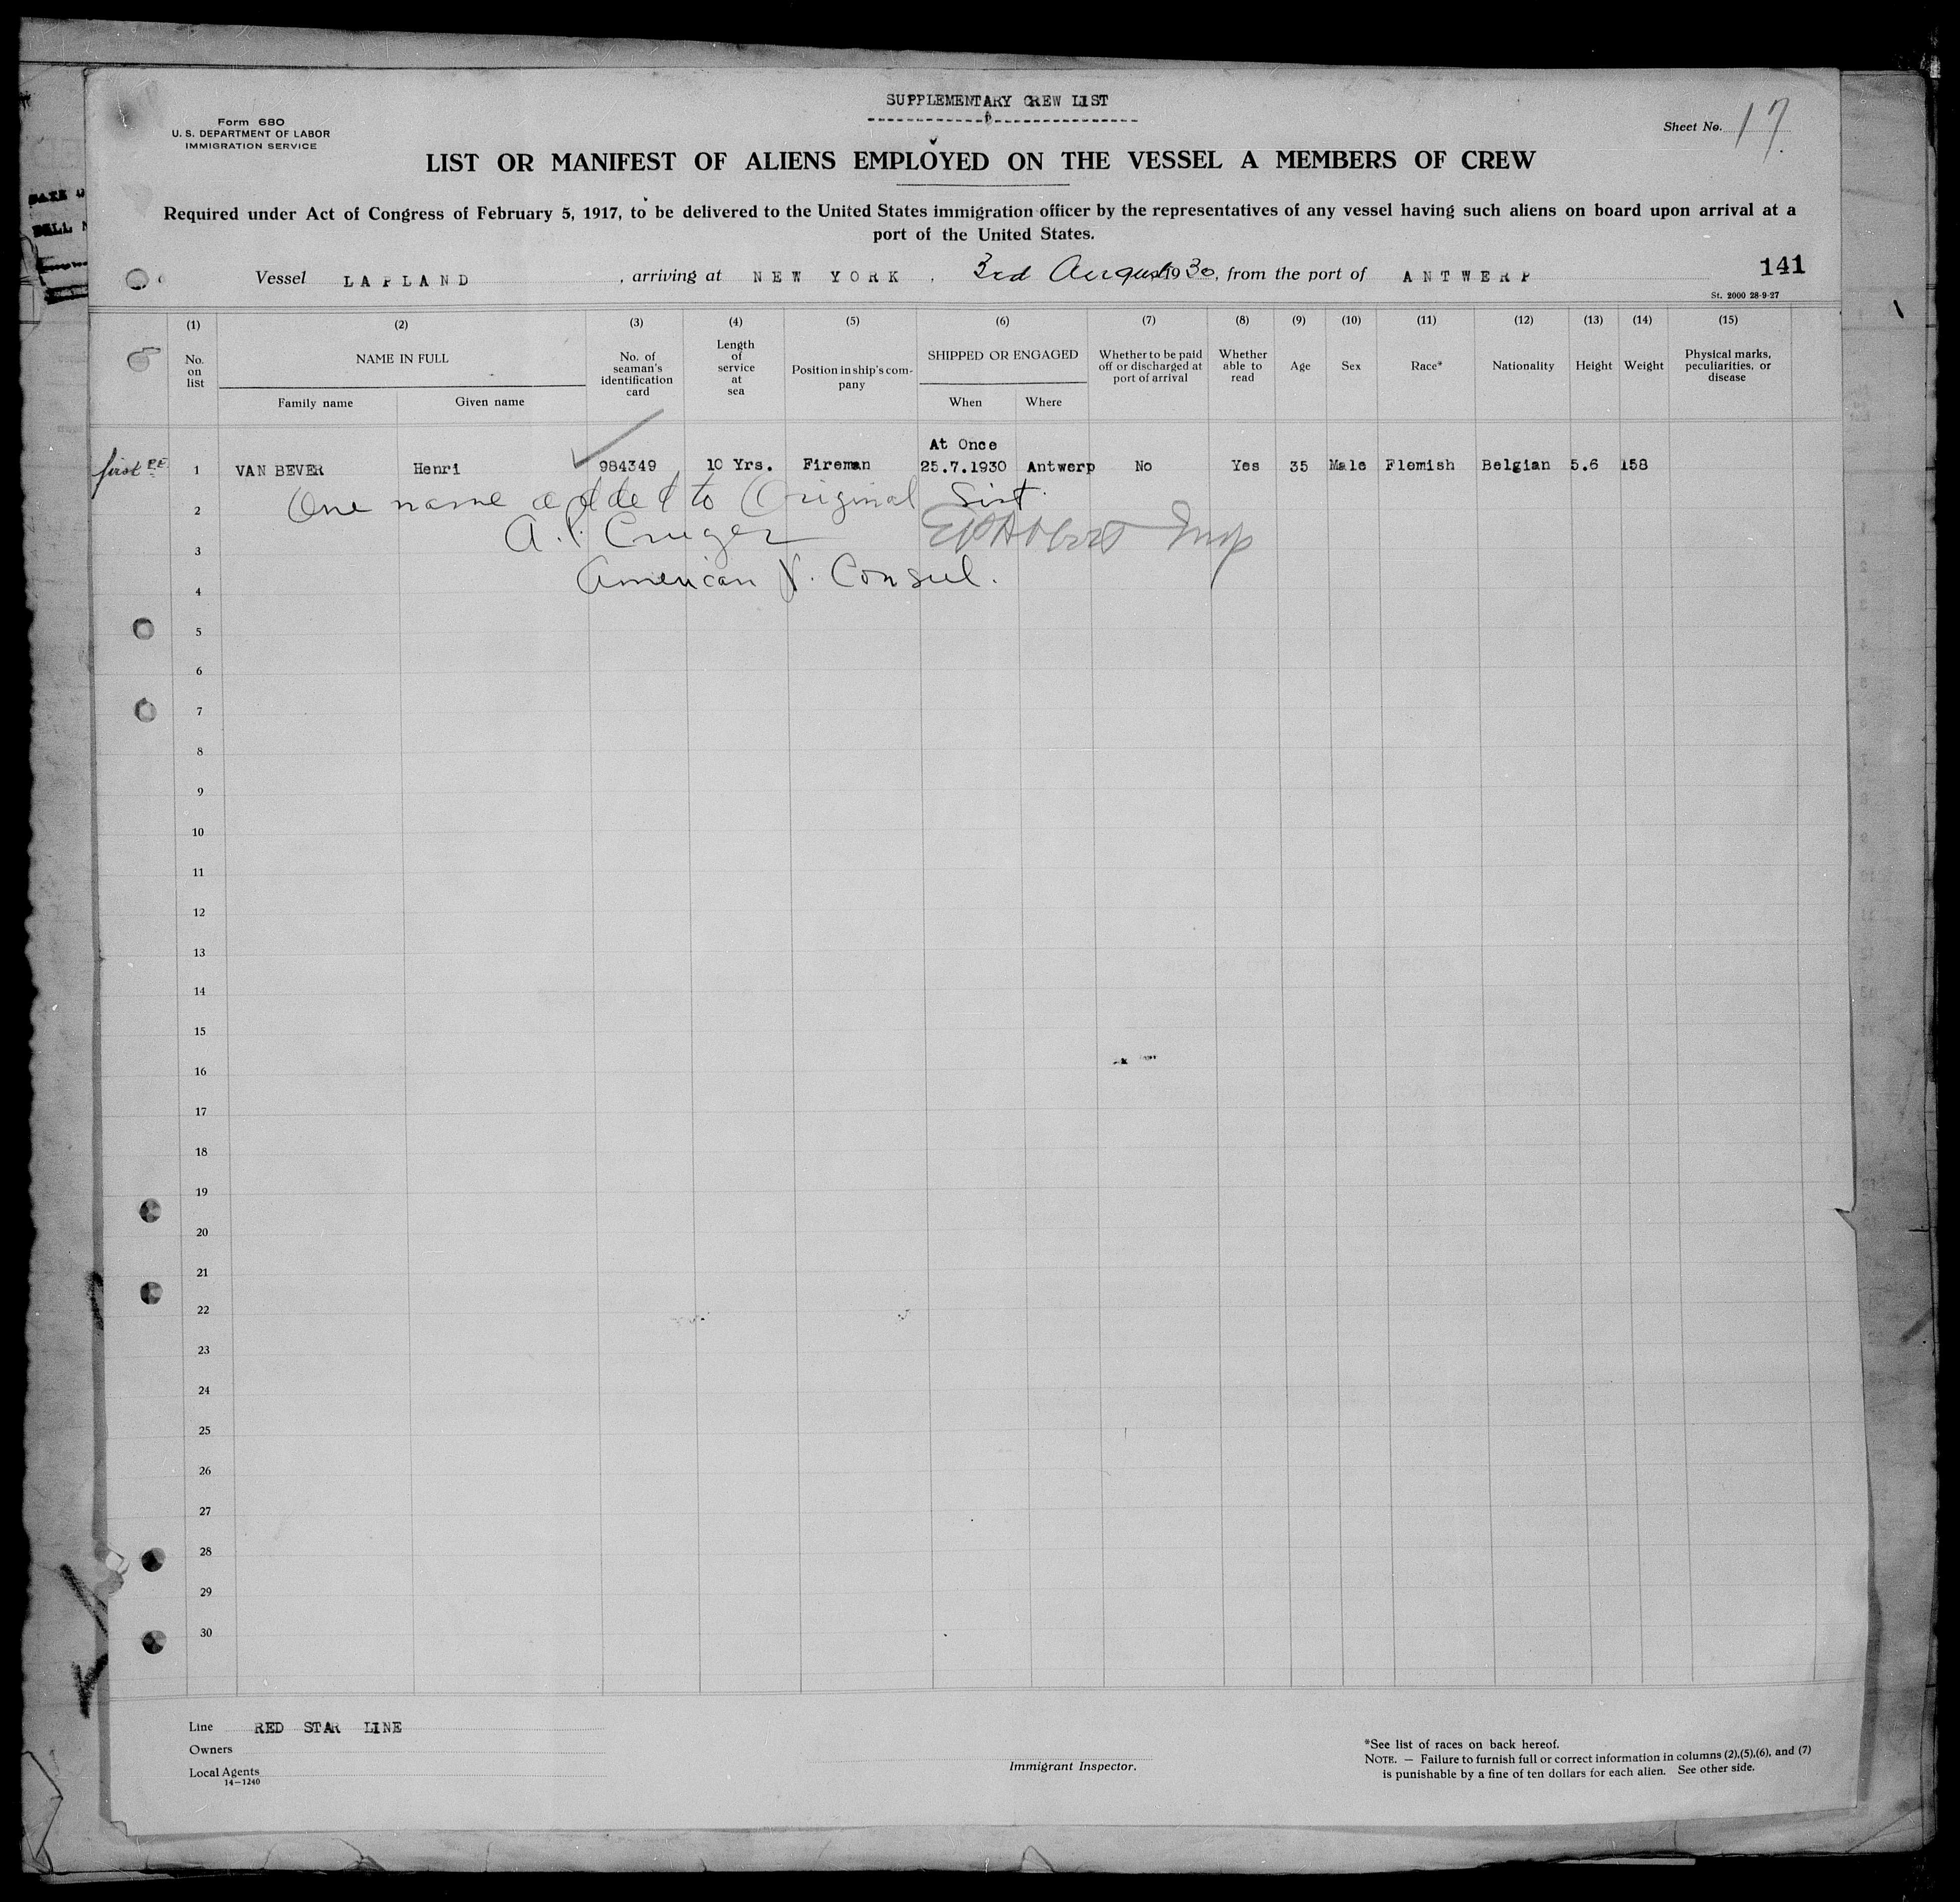 SUPPLEMENTARY CREW LIST
Form 680
U. S. DEPARTMENT OF LABOR
IMMIGRATION SERVICE
Sheet No. 17
LIST OR MANIFEST OF ALIENS EMPLOYED ON THE VESSEL A MEMBERS OF CREW
Required under Act of Congress of February 5, 1917, to be delivered to the United States immigration officer by the representatives of any vessel having such aliens on board upon arrival at a
port of the United States.
Vessel LAPLAND, arriving at NEW YORK, 3rd August 1930, from the port of ANTWERP
141
St. 2000 28-9-27
(1) (2) (3) (4) (5) (6) (7) (8) (9) (10) (11) (12) (13) (14) (15)
No. on list
NAME IN FULL
Family name Given name
No. of seaman's identification card
Length of service at sea
Position in ship's company
SHIPPED OR ENGAGED
When Where
Whether to be paid off or discharged at port of arrival
Whether able to read
Age
Sex
Race*
Nationality
Height
Weight
Physical marks, peculiarities, or disease
At Once
first 1 VAN BEVER Henri 984349 10 Yrs. Fireman 25.7.1930 Antwerp No Yes 35 Male Flemish Belgian 5.6 158
One name added to Original List.
2
A. Cruger
3
American V. Consul.
4
5
6
7
8
9
10
11
12
13
14
15
16
17
18
19
20
21
22
23
24
25
26
27
28
29
30
Line RED STAR LINE
Owners
Local Agents
14—1240
Immigrant Inspector.
*See list of races on back hereof.
NOTE. — Failure to furnish full or correct information in columns (2),(5),(6), and (7)
is punishable by a fine of ten dollars for each alien. See other side.